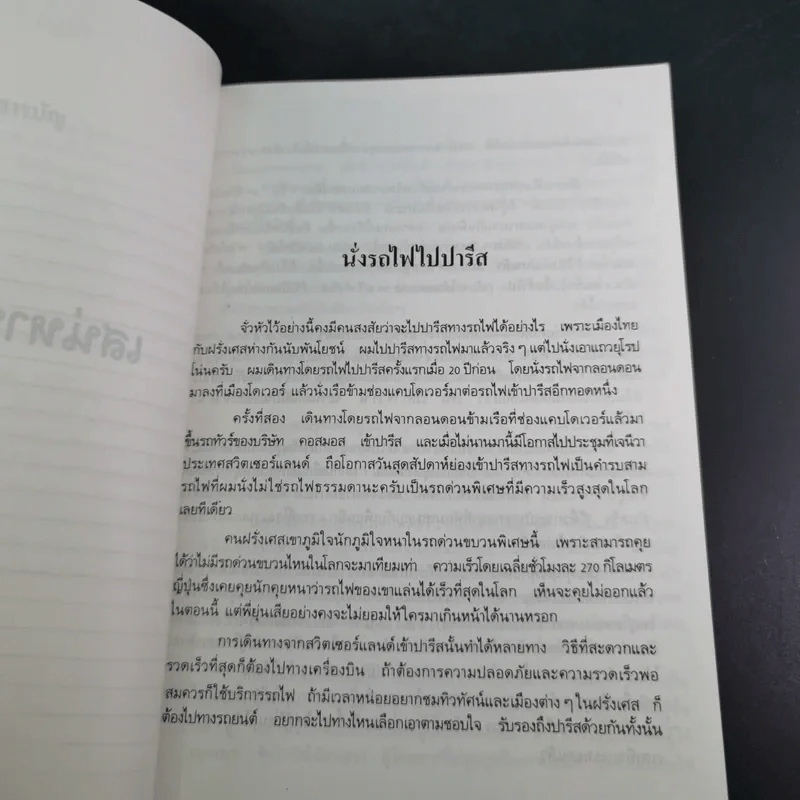 นั่งรถไฟไปปารีส
จั่วหัวไว้อย่างนี้คงมีคนสงสัยว่าจะไปปารีสทางรถไฟได้อย่างไร เพราะเมืองไทย
กับฝรั่งเศสห่างกันนับพันโยชน์ ผมไปปารีสทางรถไฟมาแล้วจริง ๆ แต่ไปนั่งเอาแถวยุโรป
โน่นครับ ผมเดินทางโดยรถไฟไปปารีสครั้งแรกเมื่อ 20 ปีก่อน โดยนั่งรถไฟจากลอนดอน
มาลงที่เมืองโดเวอร์ แล้วนั่งเรือข้ามช่องแคบโดเวอร์มาต่อรถไฟเข้าปารีสอีกทอดหนึ่ง
ครั้งที่สอง เดินทางโดยรถไฟจากลอนดอนข้ามเรือที่ช่องแคบโดเวอร์แล้วมา
ขึ้นรถทัวร์ของบริษัท คอสมอส เข้าปารีส และเมื่อไม่นานมานี้มีโอกาสไปประชุมที่เจนีวา
ประเทศสวิตเซอร์แลนด์ ถือโอกาสวันสุดสัปดาห์ย่องเข้าปารีสทางรถไฟเป็นคำรบสาม
รถไฟที่ผมนั่งไม่ใช่รถไฟธรรมดานะครับเป็นรถด่วนพิเศษที่มีความเร็วสูงสุดในโลก
เลยทีเดียว
คนฝรั่งเศสเขาภูมิใจนักภูมิใจหนาในรถด่วนขบวนพิเศษนี้ เพราะสามารถคุย
ได้ว่าไม่มีรถด่วนขบวนไหนในโลกจะมาเทียมเท่า ความเร็วโดยเฉลี่ยชั่วโมงละ 270 กิโลเมตร
ญี่ปุ่นซึ่งเคยคุยนักคุยหนาว่ารถไฟของเขาแล่นได้เร็วที่สุดในโลก เห็นจะคุยไม่ออกแล้ว
ในตอนนี้ แต่พี่ยุ่นเสียอย่างคงจะไม่ยอมให้ใครมาเกินหน้าได้นานหรอก
การเดินทางจากสวิตเซอร์แลนด์เข้าปารีสนั้นทำได้หลายทาง วิธีที่สะดวกและ
รวดเร็วที่สุดก็ต้องไปทางเครื่องบิน ถ้าต้องการความปลอดภัยและความรวดเร็วพอ
สมควรก็ใช้บริการรถไฟ ถ้ามีเวลาหน่อยอยากชมทิวทัศน์และเมืองต่าง ๆ ในฝรั่งเศส ก็
ต้องไปทางรถยนต์ อยากจะไปทางไหนเลือกเอาตามชอบใจ รับรองถึงปารีสด้วยกันทั้งนั้น